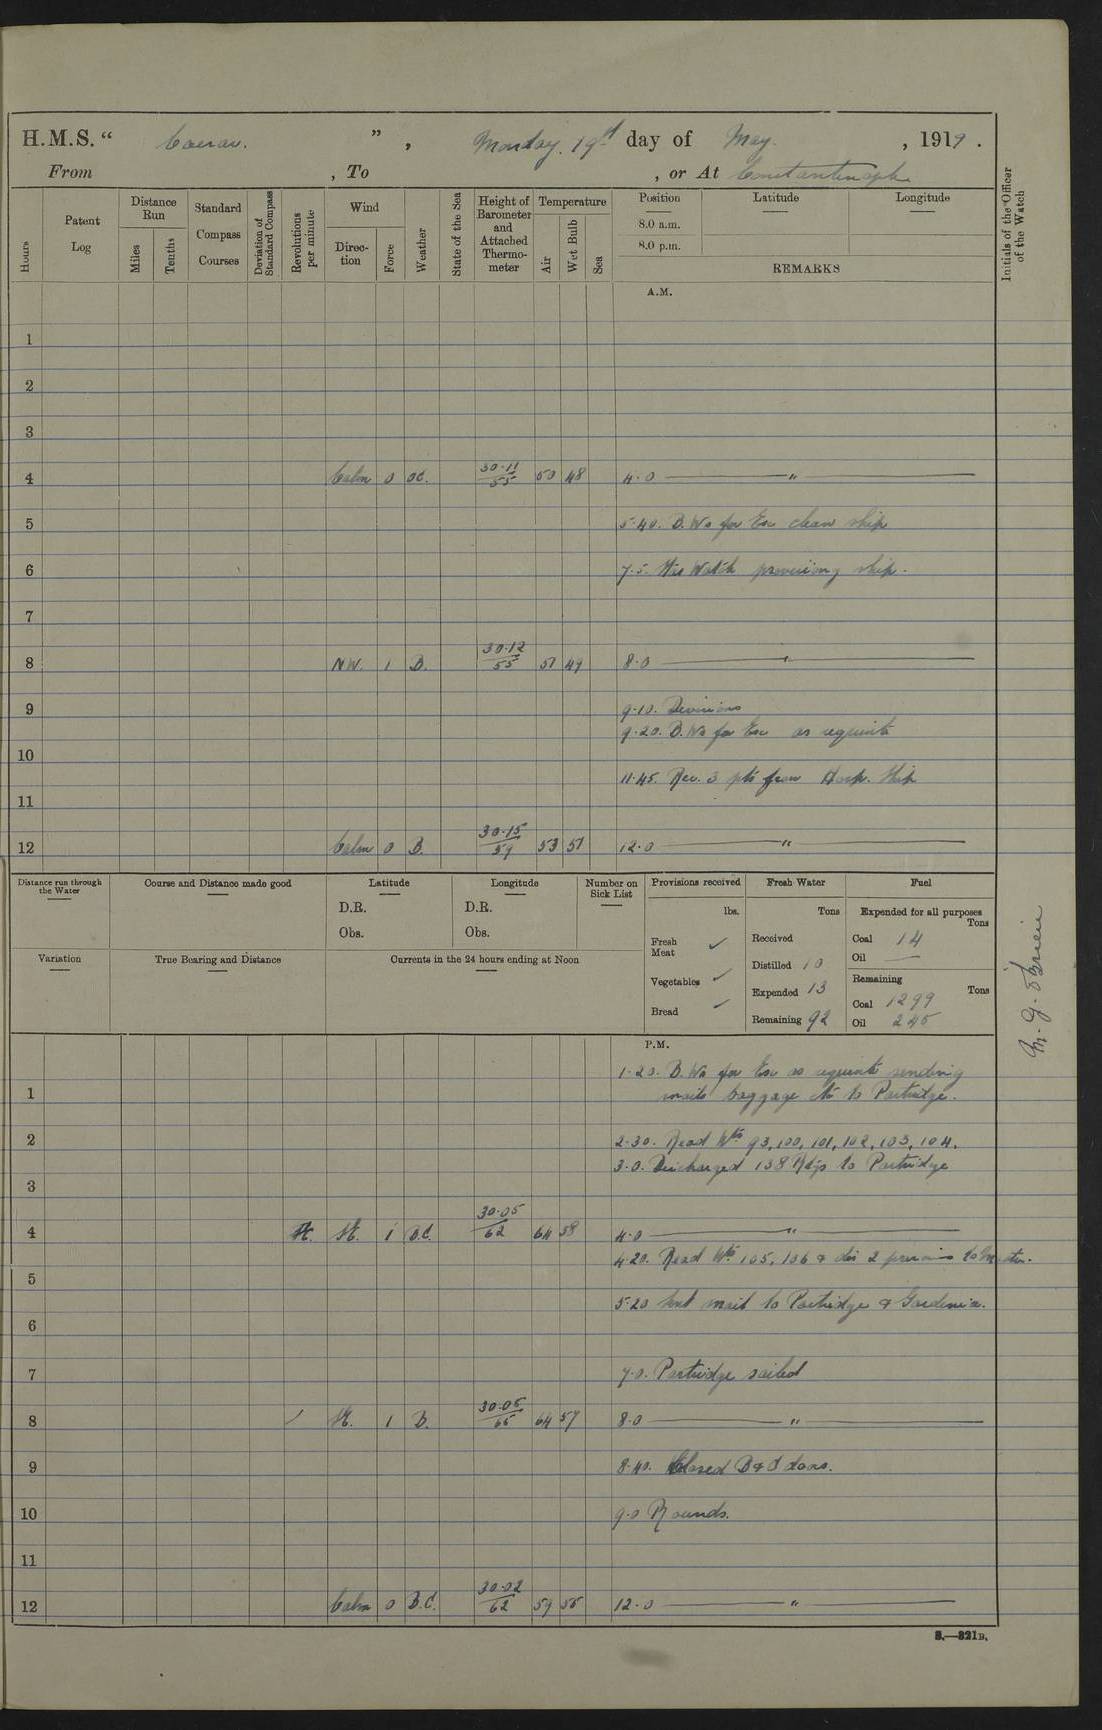 H.M.S. " Caesar. " , Monday 19th day of May. , 1919 .
From , To , or At Constantinople
Hours
Patent Log
Distance Run
Miles
Tenths
Standard Compass Courses
Deviation of Standard Compass
Revolutions per minute
Wind
Direction
Force
Weather
State of the Sea
Height of Barometer and Attached Thermometer
Temperature
Air
Wet Bulb
Sea
Position
8.0 a.m.
8.0 p.m.
Latitude
Longitude
REMARKS
Initials of the Officer of the Watch
A.M.
1
2
3
4 Calm 0 BC. 30.11/55 50 48 4.0 "
5 5.40. B.Wn for Ex clean ship
6 7.5. Wn Watch provisioning ship.
7
8 NW. 1 B. 30.12/55 51 49 8.0 "
9 9.10. Divisions
9.20. B.Wn for Ex as requisite
10
11.45. Rev. 3 pts from Hosp. Ship
11
12 Calm 0 B. 30.15/59 53 51 12.0 "
Distance run through the Water
Course and Distance made good
Latitude
D.R.
Obs.
Longitude
D.R.
Obs.
Number on Sick List
Provisions received
lbs.
Fresh Meat ✓
Vegetables ✓
Bread ✓
Fresh Water
Tons
Received
Distilled 10
Expended 13
Remaining 92
Fuel
Expended for all purposes
Tons
Coal 14
Oil —
Remaining
Tons
Coal 1299
Oil 245
Variation
True Bearing and Distance
Currents in the 24 hours ending at Noon
M. J. O'Brien
P.M.
1.20. B.Wn for Ex as requisite sending
1 mails baggage etc to Partridge.
2 2.30. Read Wts 93, 100, 101, 102, 103, 104.
3.0. Discharged 138 Rtgs to Partridge
3
4 1 B.C. 30.05/62 64 58 4.0 "
4.20. Read Wts 105, 106 & dis 2
5
5.20 Sent mail to Partridge & Gardenia.
6
7 7.0. Partridge sailed
8 1 B. 30.05/65 64 57 8.0 "
9 8.40. Closed B & S doors.
10 9.0 Rounds.
11
12 Calm 0 B.C. 30.02/62 59 55 12.0 "
S.—321B.